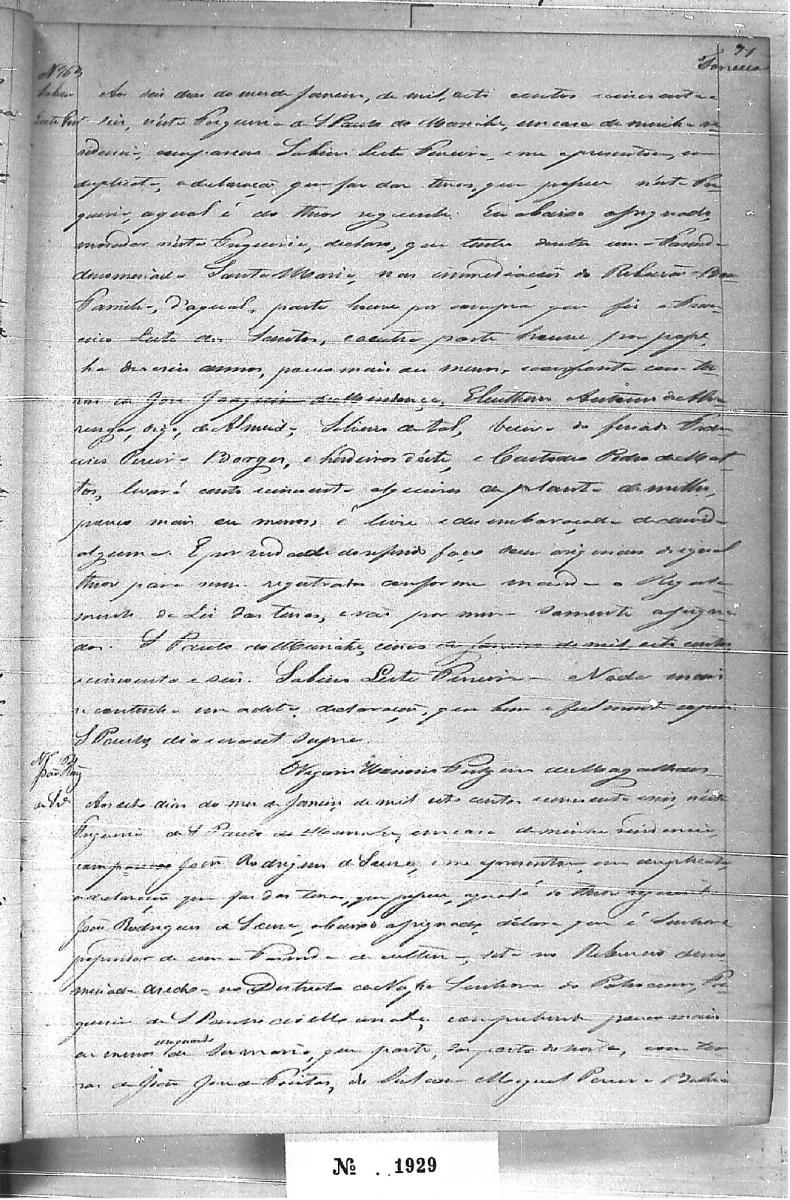 91
Nº 163
Sabino
Leite Per.
Aos seis dias do mes de Janeiro, de mil, oito centos cincoenta e
seis, n'esta Freguesia de S Paulo do Muriahe, em casa de minha re
zidencia, compareceo Sabino Leite Pereira, e me apresentou, em
duplicata, a declaração, que faz das terras, que possue n'esta Fre
guesia, a qual é do theor seguinte. Eu abaixo assignado,
morador n'esta Freguesia, declaro, que tenho dentro uma Fazenda
denominada Santa Maria, nas immediaçoẽs do Ribeirão Boa
Familia, d'a qual, parte houve por compra que fiz a Fran
cisco Leite dos Santos, e a outra parte houve por posse,
ha dezeseis annos, pouco mais ou menos, confronta com ter
ras de José Joaquim de Mendonça, Eleutherio Antonio de Alva
renga, digo, de Almeida, Silverio de tal, viuva do finado Fran
cisco Pereira Borges, e herdeiros d'este, e Custodio Pedro de Mat
tos, levará cento cincoenta alqueires de planta de milho,
pouco mais ou menos, é livre e desembaraçada de duvida
alguma. E por verdade do referido faço dous originaes de igual
theor para serem registrados conforme manda o Regula
mento da Lei das terras, e vão por mim somente assigna
dos. S Paulo do Muriahe, cinco de Janeiro de mil oito centos
e cincoenta e seis. Sabino Leite Pereira - Nada mais
se continha em a dita declaração, que bem e fielmente copiei
S Paulo, dia era ut supra.
O Vigario
de Magalhaens
Nº
João Roiz
de Sz.ª
Aos oito dias do mes de Janeiro de mil oito centos cincoenta e seis, n'esta
Freguesia de S Paulo do Muriahe, em casa de minha residencia,
compareceo João Rodrigues de Souza, e me apresentou, em duplicata,
a declaração que faz das terras, que possue, a qual é do theor seguinte
João Rodrigues de Souza, abaixo assignado, declara que é Senhor e
possuidor de uma Fazenda de cultura, sita no Ribeirão deno
minado no Districto de Nossa Senhora do Patrocinio, Fre
guesia de S Paulo do Muriahe, comprehende pouco mais
ou menos um quarto de Sesmaria, que parte, da parte do norte, com ter
ras de João José de Freitas, do Sul com Miguel Pereira
Nº 1929